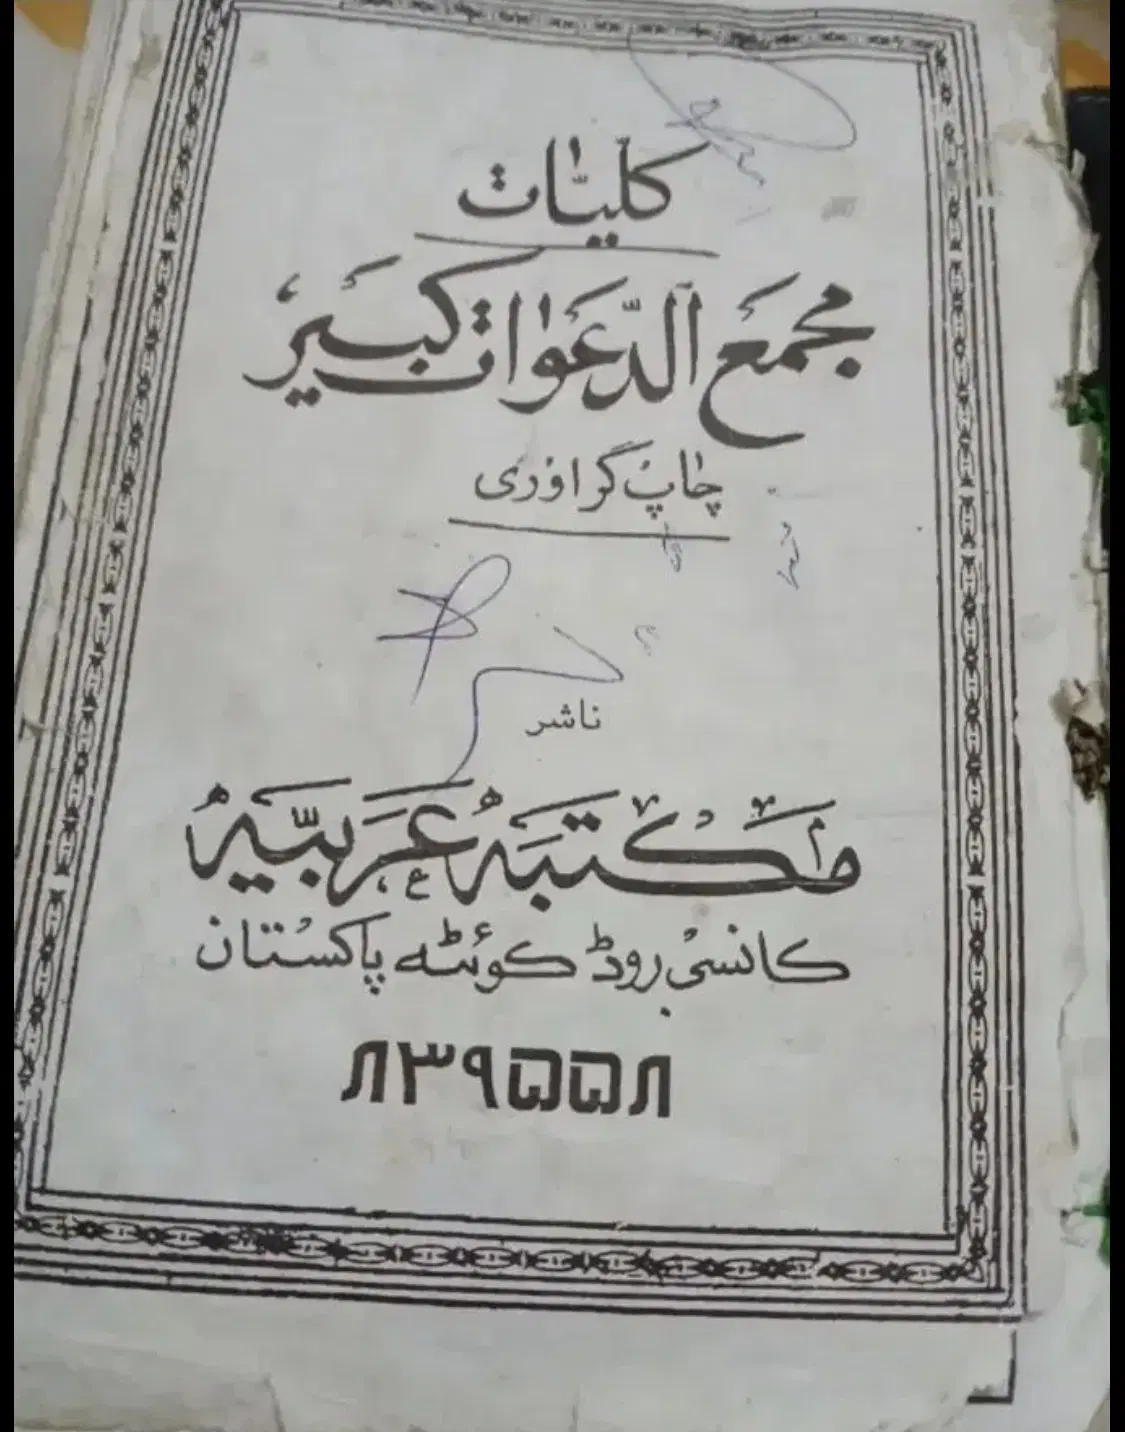 کلیّات
مجمع الدّعوات کبیر
چاپ گراوری
ناشر
مکتبہ عربیّہ
کانسی روڈ کوئٹہ پاکستان
۸۳۹۵۵۸